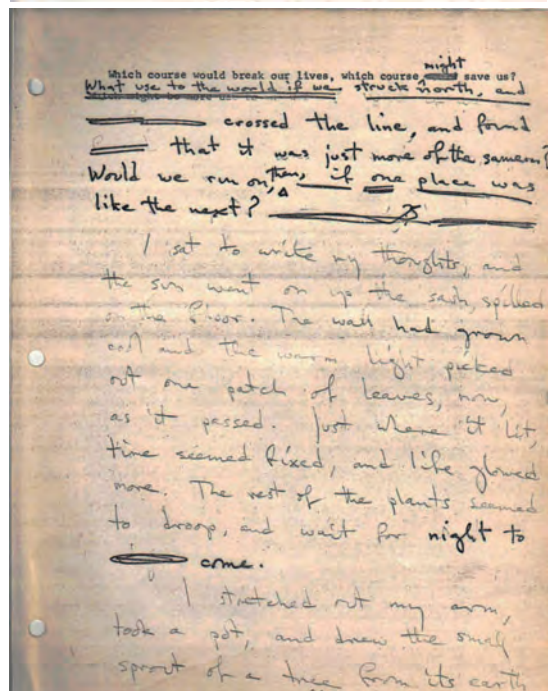 night
Which course would break our lives, which course save us?
What use to the world if we struck north, and
crossed the line, and found
that it was just more of the same?
Would we run on, then, if one place was
like the next?
I sat to write my thoughts, and
the sun went on up the sash, spilled
on the floor. The wall had grown
cool and the warm light picked
out one patch of leaves, now,
as it passed. Just where it lit,
time seemed fixed, and life glowed
more. The rest of the plants seemed
to droop, and wait for night to
come.
I stretched out my arm,
took a pot, and drew the small
sprout of a tree from its earth